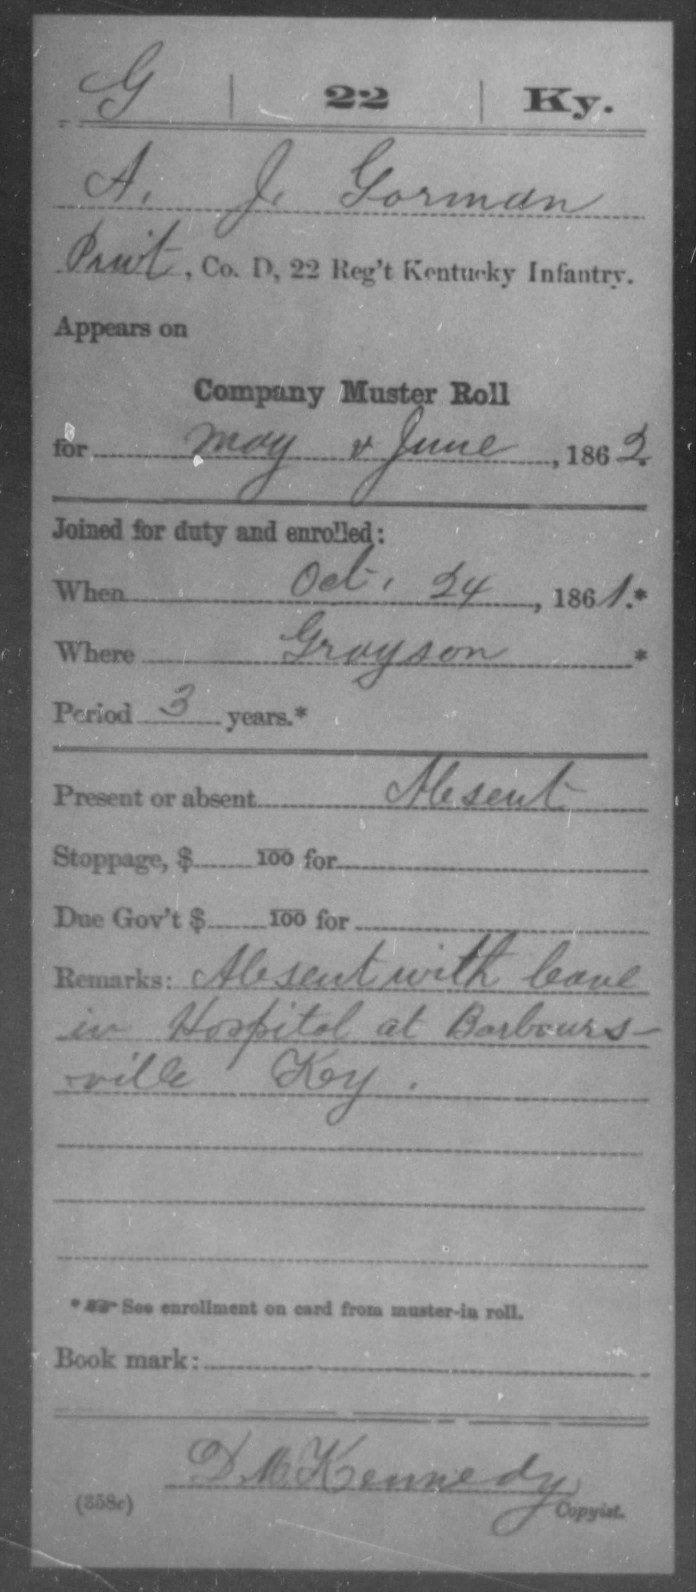 G | 22 | Ky.
A. J. Gorman
Privt, Co. D, 22 Reg't Kentucky Infantry.
Appears on
Company Muster Roll
for May & June, 1862.
Joined for duty and enrolled:
When Oct. 24, 1861.*
Where Grayson *
Period 3 years.*
Present or absent Absent
Stoppage, $ 100 for
Due Gov't $ 100 for
Remarks: Absent with leave
in Hospital at Barbours-
ville Key.
* See enrollment on card from muster-in roll.
Book mark:
D. M. Kennedy
(358c) Copyist.